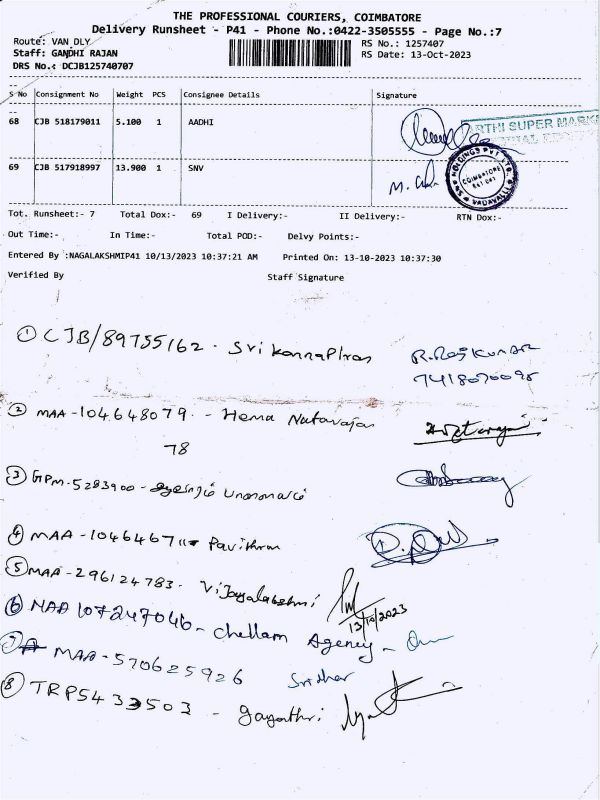 THE PROFESSIONAL COURIERS, COIMBATORE
Delivery Runsheet - P41 - Phone No.:0422-3505555 - Page No.:7
Route: VAN_DLY
RS No.: 1257407
Staff: GANDHI RAJAN
RS Date: 13-Oct-2023
DRS No.: DCJB125740707
S No Consignment No Weight PCS Consignee Details Signature
68 CJB 518179011 5.100 1 AADHI
SUPER MARK
69 CJB 517918997 13.900 1 SNV
HOLDINGS PVT LTD
COIMBATORE
VADAVALLI
Tot. Runsheet:- 7 Total Dox:- 69 I Delivery:- II Delivery:- RTN Dox:-
Out Time:- In Time:- Total POD:- Delvy Points:-
Entered By :NAGALAKSHMIP41 10/13/2023 10:37:21 AM Printed On: 13-10-2023 10:37:30
Verified By Staff Signature
① CJB/89755162 - Sri kannapiran R.RajKUMAR
7418070098
② MAA-104648079 - Hema Natarajan
78
③ GPM-5283900 -
④ MAA-10464671 Pavithra
⑤ MAA-296124783 - Vijayalakshmi
13/10/2023
⑥ MAA 107247046 - Chellam Agency -
⑦ MAA-570625926 Sridhar
⑧ TRP5433503 - gayathri